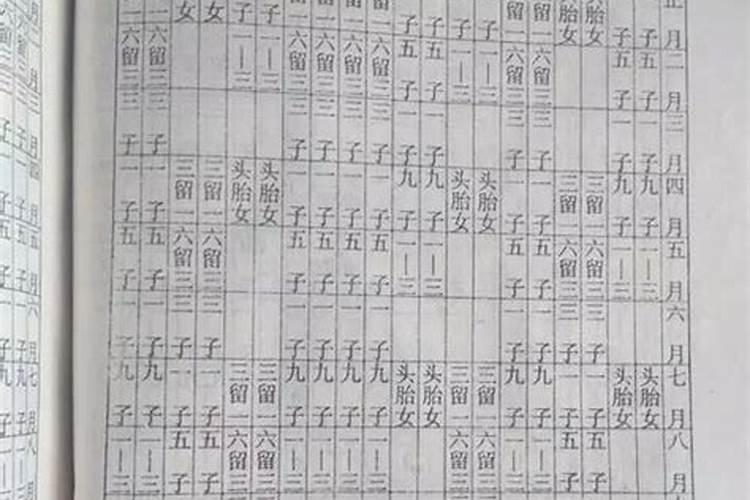 月二月三月四月五月六月七月八月
子五子一子九子一｜三头胎女
子五子一子九子一｜三头胎女
胎女三留一六留三三子一子五子
胎女三留一六留三三子一子五子
留一六留三三子一子五子一子九子一｜三
留一六留三三子一子五子一子九子一｜三
子一｜三头胎女三留一六留三
子一｜三头胎女三留一六留三
子五子一子九子一｜三头胎女
子五子一子九子一｜三头胎女
留一六留三三子一子五子一子九子一｜三
一六留三三子一子五子一子九子一｜三
一六留三三子一子五子一子九子一｜三
一六留三三子一子五子一子九子一｜三
子一｜三头胎女三留一六留三
子一｜三头胎女三留一六留三
女三留一六留三三子一子五子
女三留一六留三三子一子五子
一六留三三子一子五子一子九子一｜三
一六留三三子一子五子一子九子一｜三